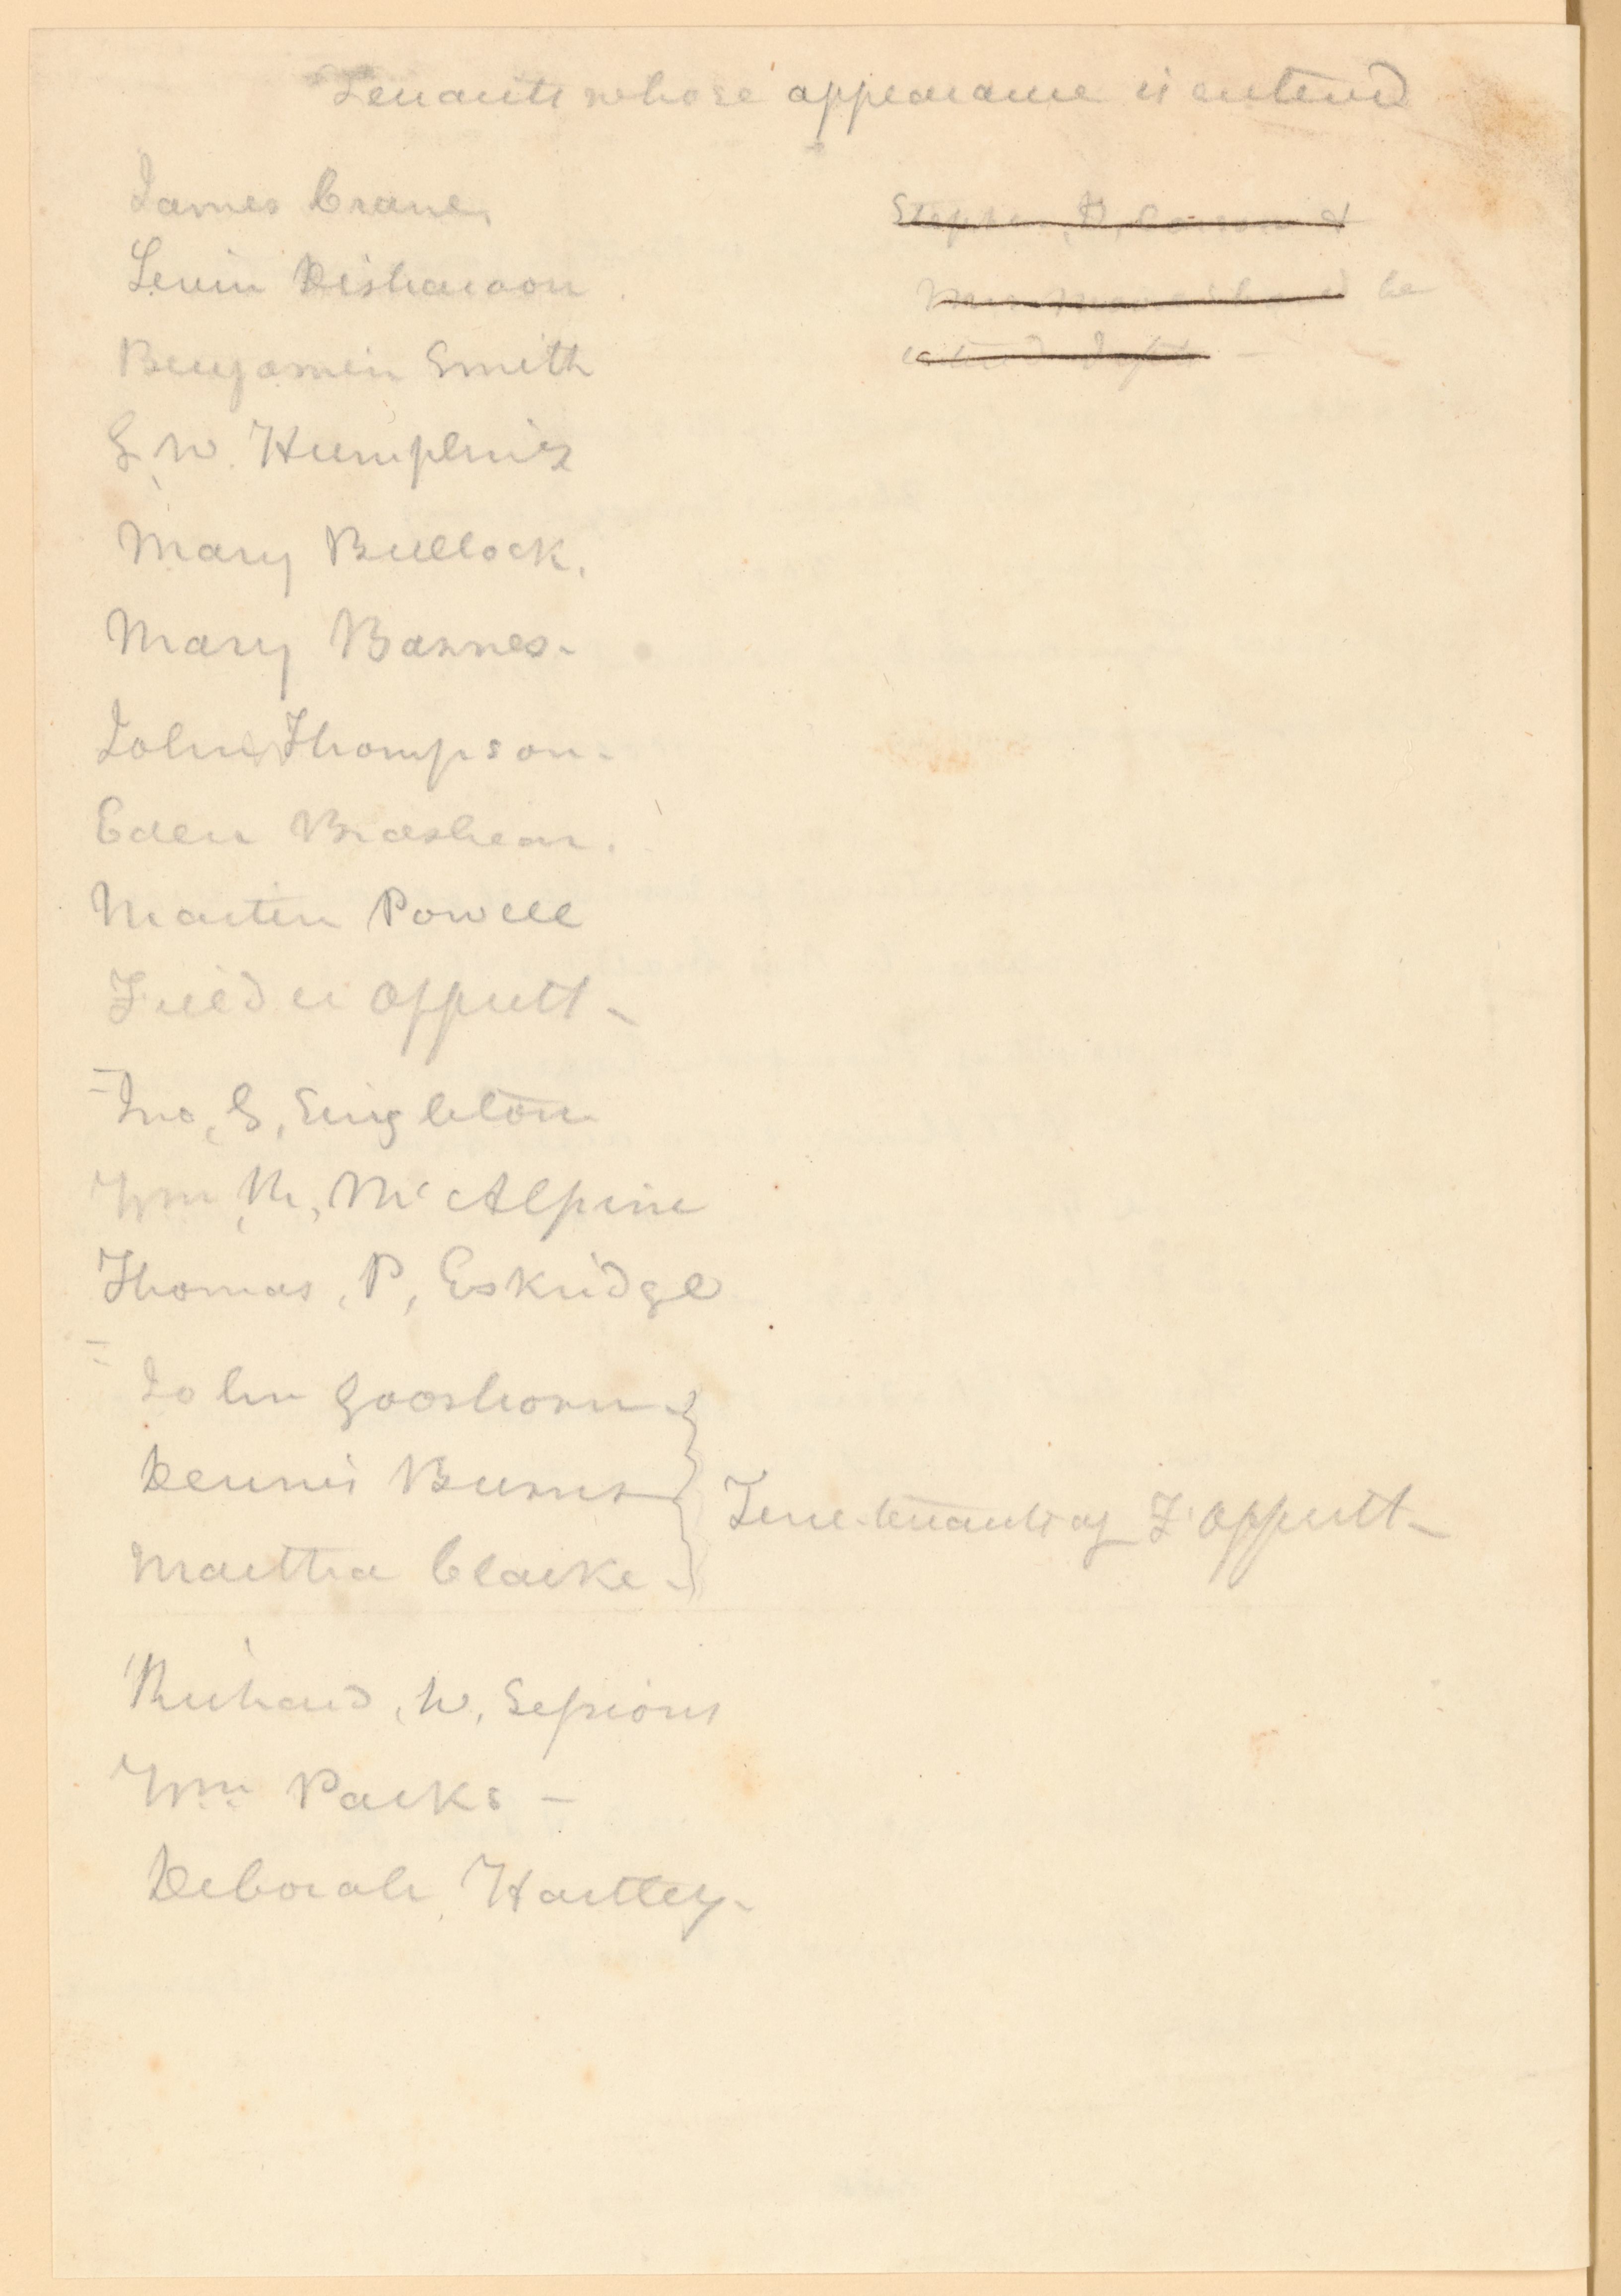 Tenants whose appearance is entered
James Crane,
Levin Disharoon
Benjamin Smith
G. W. Humphries
Mary Bullock.
Mary Barnes-
John Thompson-
Eden Brashear.
Martin Powell
Offutt-
Jno, G, Singleton
Wm M, Mc Alpine
Thomas, P, Eskridge
John Gooshorn-
Dennis Burns
Martha Clarke-
tenants of F Offutt-
Richard, W, Sessions
Wm Parks -
Deborah Hartley-
Stephen, D,
be